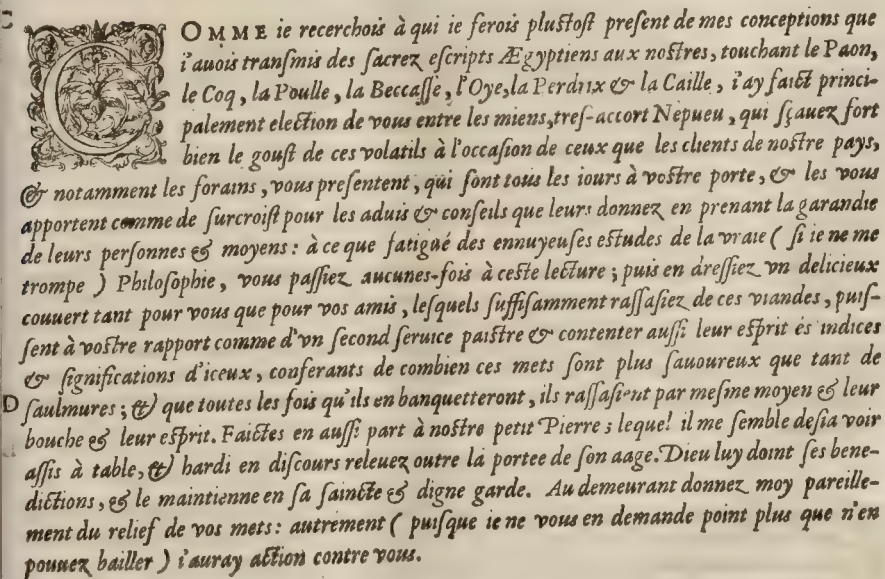 C
COMME ie recerchois à qui ie ferois plustost present de mes conceptions que
i'auois transmis des sacrez escripts Ægyptiens aux nostres, touchant le Paon,
le Coq, la Poulle, la Beccasse, l'Oye, la Perdrix & la Caille, i'ay faict princi-
palement election de vous entre les miens, tres-accort Nepueu, qui sçauez fort
bien le goust de ces volatils à l'occasion de ceux que les clients de nostre pays,
& notamment les forains, vous presentent, qui sont tous les iours à vostre porte, & les vous
apportent comme de surcroist pour les aduis & conseils que leurs donnez en prenant la garandie
de leurs personnes & moyens: à ce que fatigué des ennuyeuses estudes de la vraie ( si ie ne me
trompe ) Philosophie, vous passiez aucunes-fois à ceste lecture; puis en dressiez vn delicieux
couuert tant pour vous que pour vos amis, lesquels suffisamment rassasiez de ces viandes, puis-
sent à vostre rapport comme d'vn second seruice paistre & contenter aussi leur esprit és indices
& significations d'iceux, conferants de combien ces mets sont plus sauoureux que tant de
D saulmures; & que toutes les fois qu'ils en banquetteront, ils rassasient par mesme moyen & leur
bouche & leur esprit. Faictes en aussi part à nostre petit Pierre; lequel il me semble desia voir
assis à table, & hardi en discours releuez outre la portee de son aage. Dieu luy doint ses bene-
dictions, & le maintienne en sa saincte & digne garde. Au demeurant donnez moy pareille-
ment du relief de vos mets: autrement ( puisque ie ne vous en demande point plus que n'en
pouuez bailler ) i'auray action contre vous.